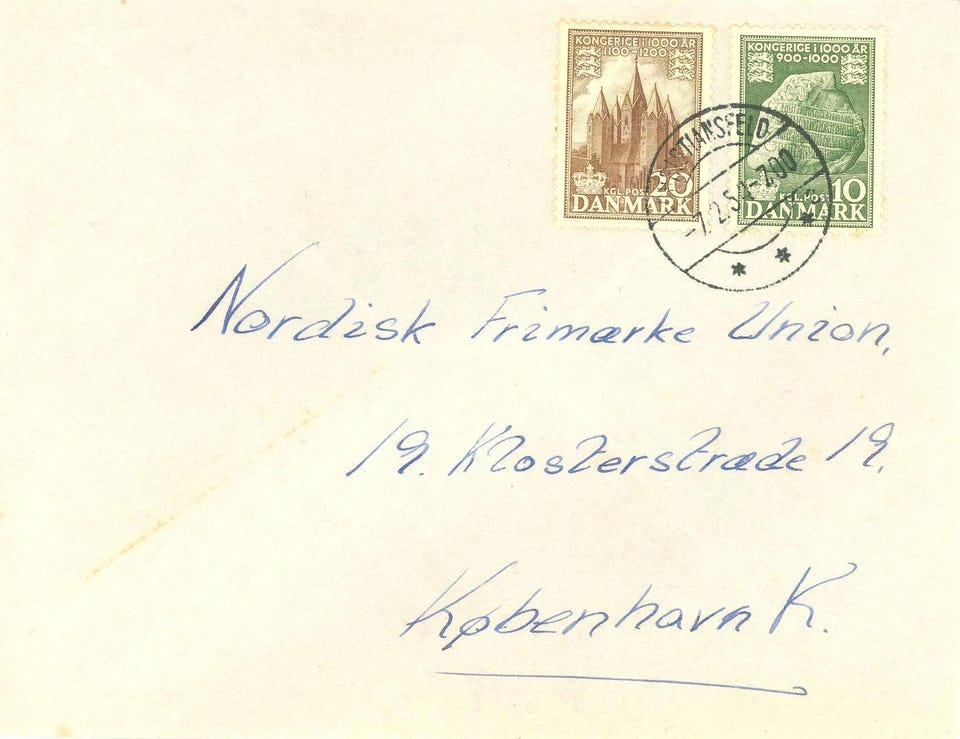 KONGERIGE I 1000 ÅR
1100-1200
KGL. POST 20
DANMARK
KONGERIGE I 1000 ÅR
900-1000
KGL. POST 10
DANMARK
STIANSFELD
Nordisk Frimærke Union,
19. Klosterstræde 19.
København K.